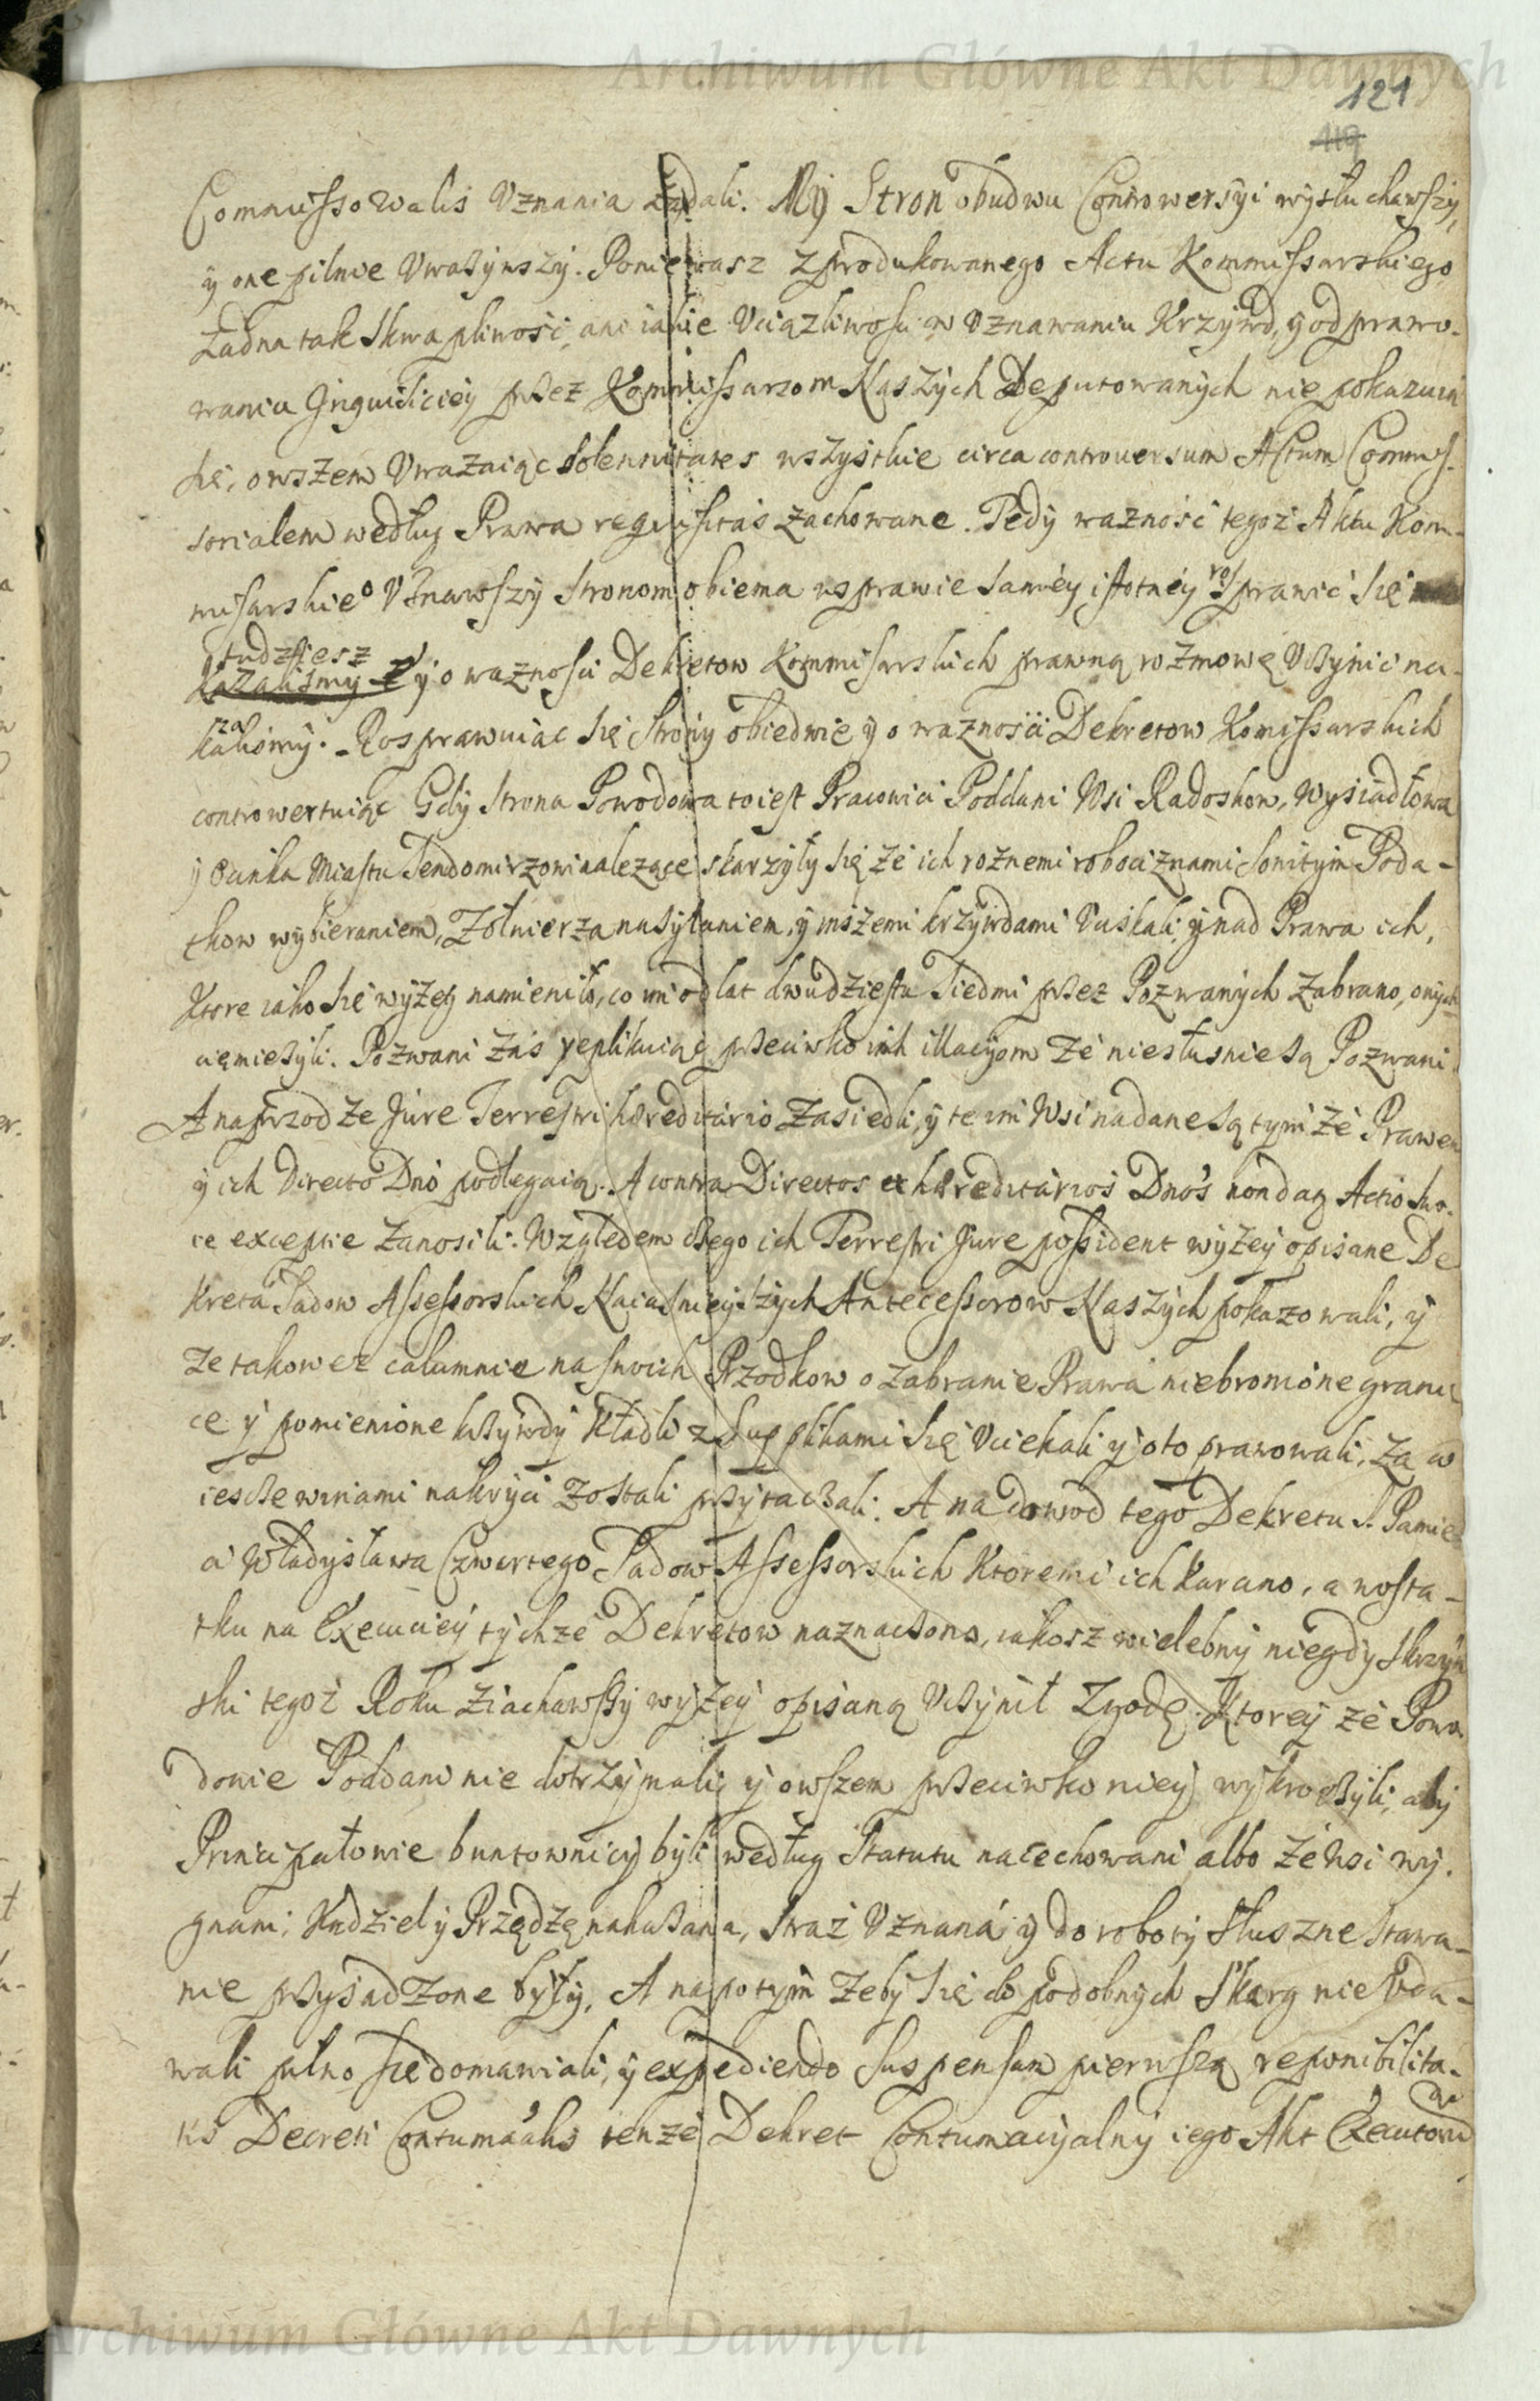 Archiwum Główne Akt Dawnych
121
119
Commissowalis Uznania żądali. My Stron obudwu Controwersyi wysłuchawszy,
y one pilnie Uważywszy. Ponieważ z produkowanego Actu Kommissarskiego
żadna tak Skwapliwość, ani iakie Uciążliwości w Uznawaniu Krzywd, y odprawo-
waniu Inquiticiey przez Kommissarzom Naszych Deputowanych nie pokazuie
się, owszem Uważaiąc solennitates wszystkie circa controversum Actum Commis-
sorialem według Prawa requisitas zachowane. Tedy ważność tegoż Aktu Kom-
misarskieo Uznawszy Stronom obiema w sprawie samey istotney rosprawić się
tudziesz
kazaliśmy y o ważności Dekretow Kommisarskich prawną rozmowę Uczynić na-
za
kaliśmy. Rosprawuiąc się Strony obiedwie y o ważności Dekretow Komissarskich
controwertuiąc Gdy Strona Powodowa to iest Pracowici Poddani Wsi Radoskow, Wysiadłowa
y Ocinka Miastu Sendomirzowi należące skarzyły się że ich roznemi robociznami sowitym Poda-
tkow wybieraniem, Zołnierza nasyłaniem, y inszemi krzywdami Uciskali, y nad Prawa ich,
Ktore iako się wyżey namieniło, co im od lat dwudziestu Siedmi przez Pozwanych zabrano, onych
ciemiężyli. Pozwani zaś replikuiąc przeciwko inh illacyom że niesłusznie są Pozwani.
A naprzod że Jure Terrestri hæreditario Zasiedli, y te im Wsi nadane są tym że Prawem
y ich Directo Dno podlegaią. A contra Directos et hæreditarios Dnos non datz Actio swo-
ie exceptie zanosili. Względem czego ich Terrestri Jure possident wyżey opisane De
kreta Sadow Assessorskich Naiaśnieyszych Antecessorow Naszych pokazowali, y
że takowez calumnie na swoich Przodkow o zabranie Prawa niebronione grani
ce y pomienione krzywdy kładli z Supplikami się Uciekali y o to prawowali, za co
ieszcze winami nakryci zostali przytaczali. A na dowod tego Dekretu S. Pamie
ci Władysława Czwartego Sadow Assessorskich Ktoremi ich karano, a nosta-
tku na Execuciey tychże Dekretow naznaczono, iakosz wielebny niegdy Skrzyn
ski tegoż Roku ziachawszy wyżey opisaną Uczynił Zgodę. Ktorey że Powo
dowie Poddani nie dotrzymali, y owszem przeciwko niey wykroczyli, aby
Principałowie buntownicy byli według Statutu nacechowani albo że Wsi wy-
gnani; Kądziel y Przędzę nakazana, Straż Uznaná, y do roboty Słuszne Stawa-
nie przysadzone były, A napotym żeby się do podobnych Skarg nie Uda-
wali pilno się domawiali, y expediendo suspensam pierwszą reponibilita-
tis Decreti Contumacialis tenże Dekret Contumacyalny iego Akt Executow
Archiwum Główne Akt Dawnych